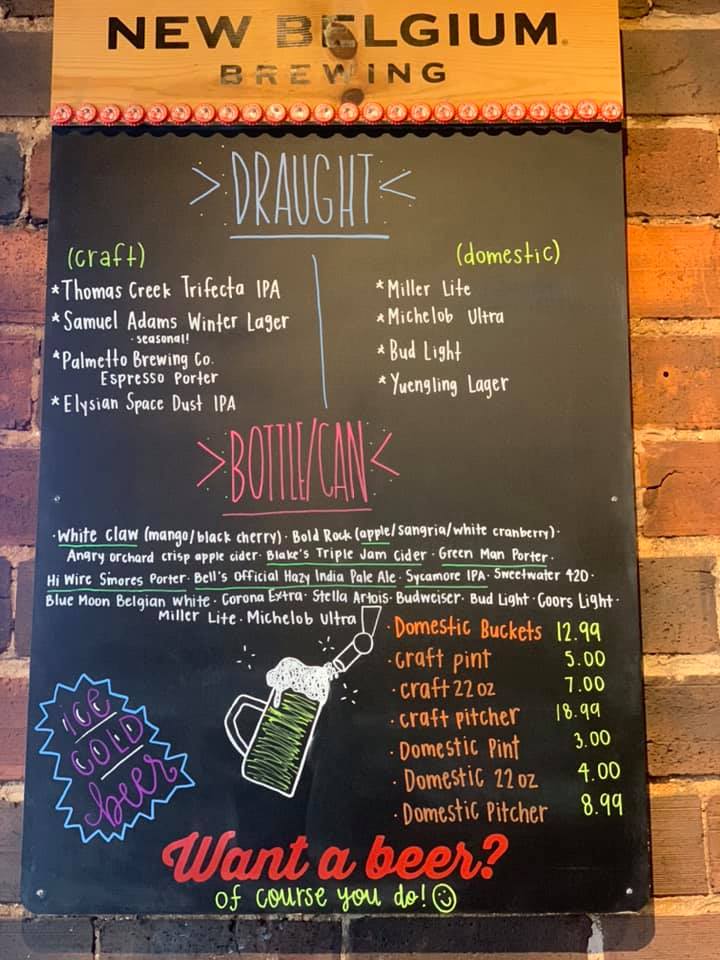 NEW BELGIUM
BREWING
>DRAUGHT<
(craft)
*Thomas Creek Trifecta IPA
*Samuel Adams Winter Lager
· seasonal!
*Palmetto Brewing Co.
Espresso Porter
*Elysian Space Dust IPA
(domestic)
*Miller Lite
*Michelob Ultra
*Bud Light
*Yuengling Lager
>BOTTLE/CAN<
·White Claw (mango/black cherry)· Bold Rock (apple/sangria/white cranberry)·
Angry orchard crisp apple cider· Blake's Triple Jam Cider · Green Man Porter·
Hi Wire S'mores Porter· Bell's Official Hazy India Pale Ale· Sycamore IPA· Sweetwater 420·
Blue Moon Belgian White· Corona Extra· Stella Artois· Budweiser· Bud Light· Coors Light·
Miller Lite· Michelob Ultra
· Domestic Buckets 12.99
·craft pint 5.00
·craft 22 oz 7.00
·craft pitcher 18.99
· Domestic Pint 3.00
· Domestic 22 oz 4.00
· Domestic Pitcher 8.99
ICE
COLD
beer
Want a beer?
of course you do!